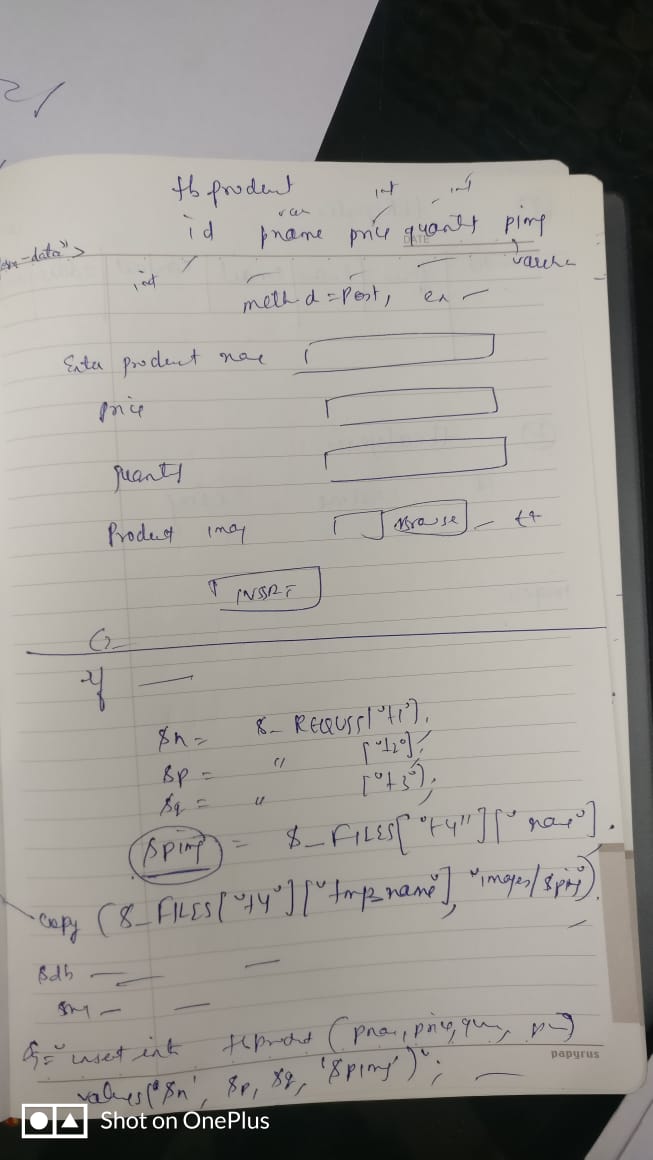 tb product
int int
var
id pname price quantity pimg
DATE
-data">
int varcha
method = Post, en
Enter product name
price
quantity
Product img Browse t4
INSERT
if
$n = $_REQUEST["t1"],
$p = " ["t2"];
$q = " ["t3"),
$pimg = $_FILES["t4"]["name"].
copy ($_FILES["t4"]["tmp_name"], "images/$pimg").
$db
insert into tbproduct (pname, price,
papyrus
values('$n', $p, $q, '$pimg')";
Shot on OnePlus